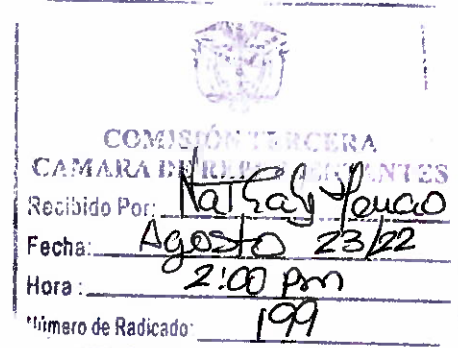 COMISIÓN TERCERA
CAMARA DE REPRESENTANTES
Recibido Por: Nathaly Henao
Fecha: Agosto 23/22
Hora: 2:00 pm
Número de Radicado: 199